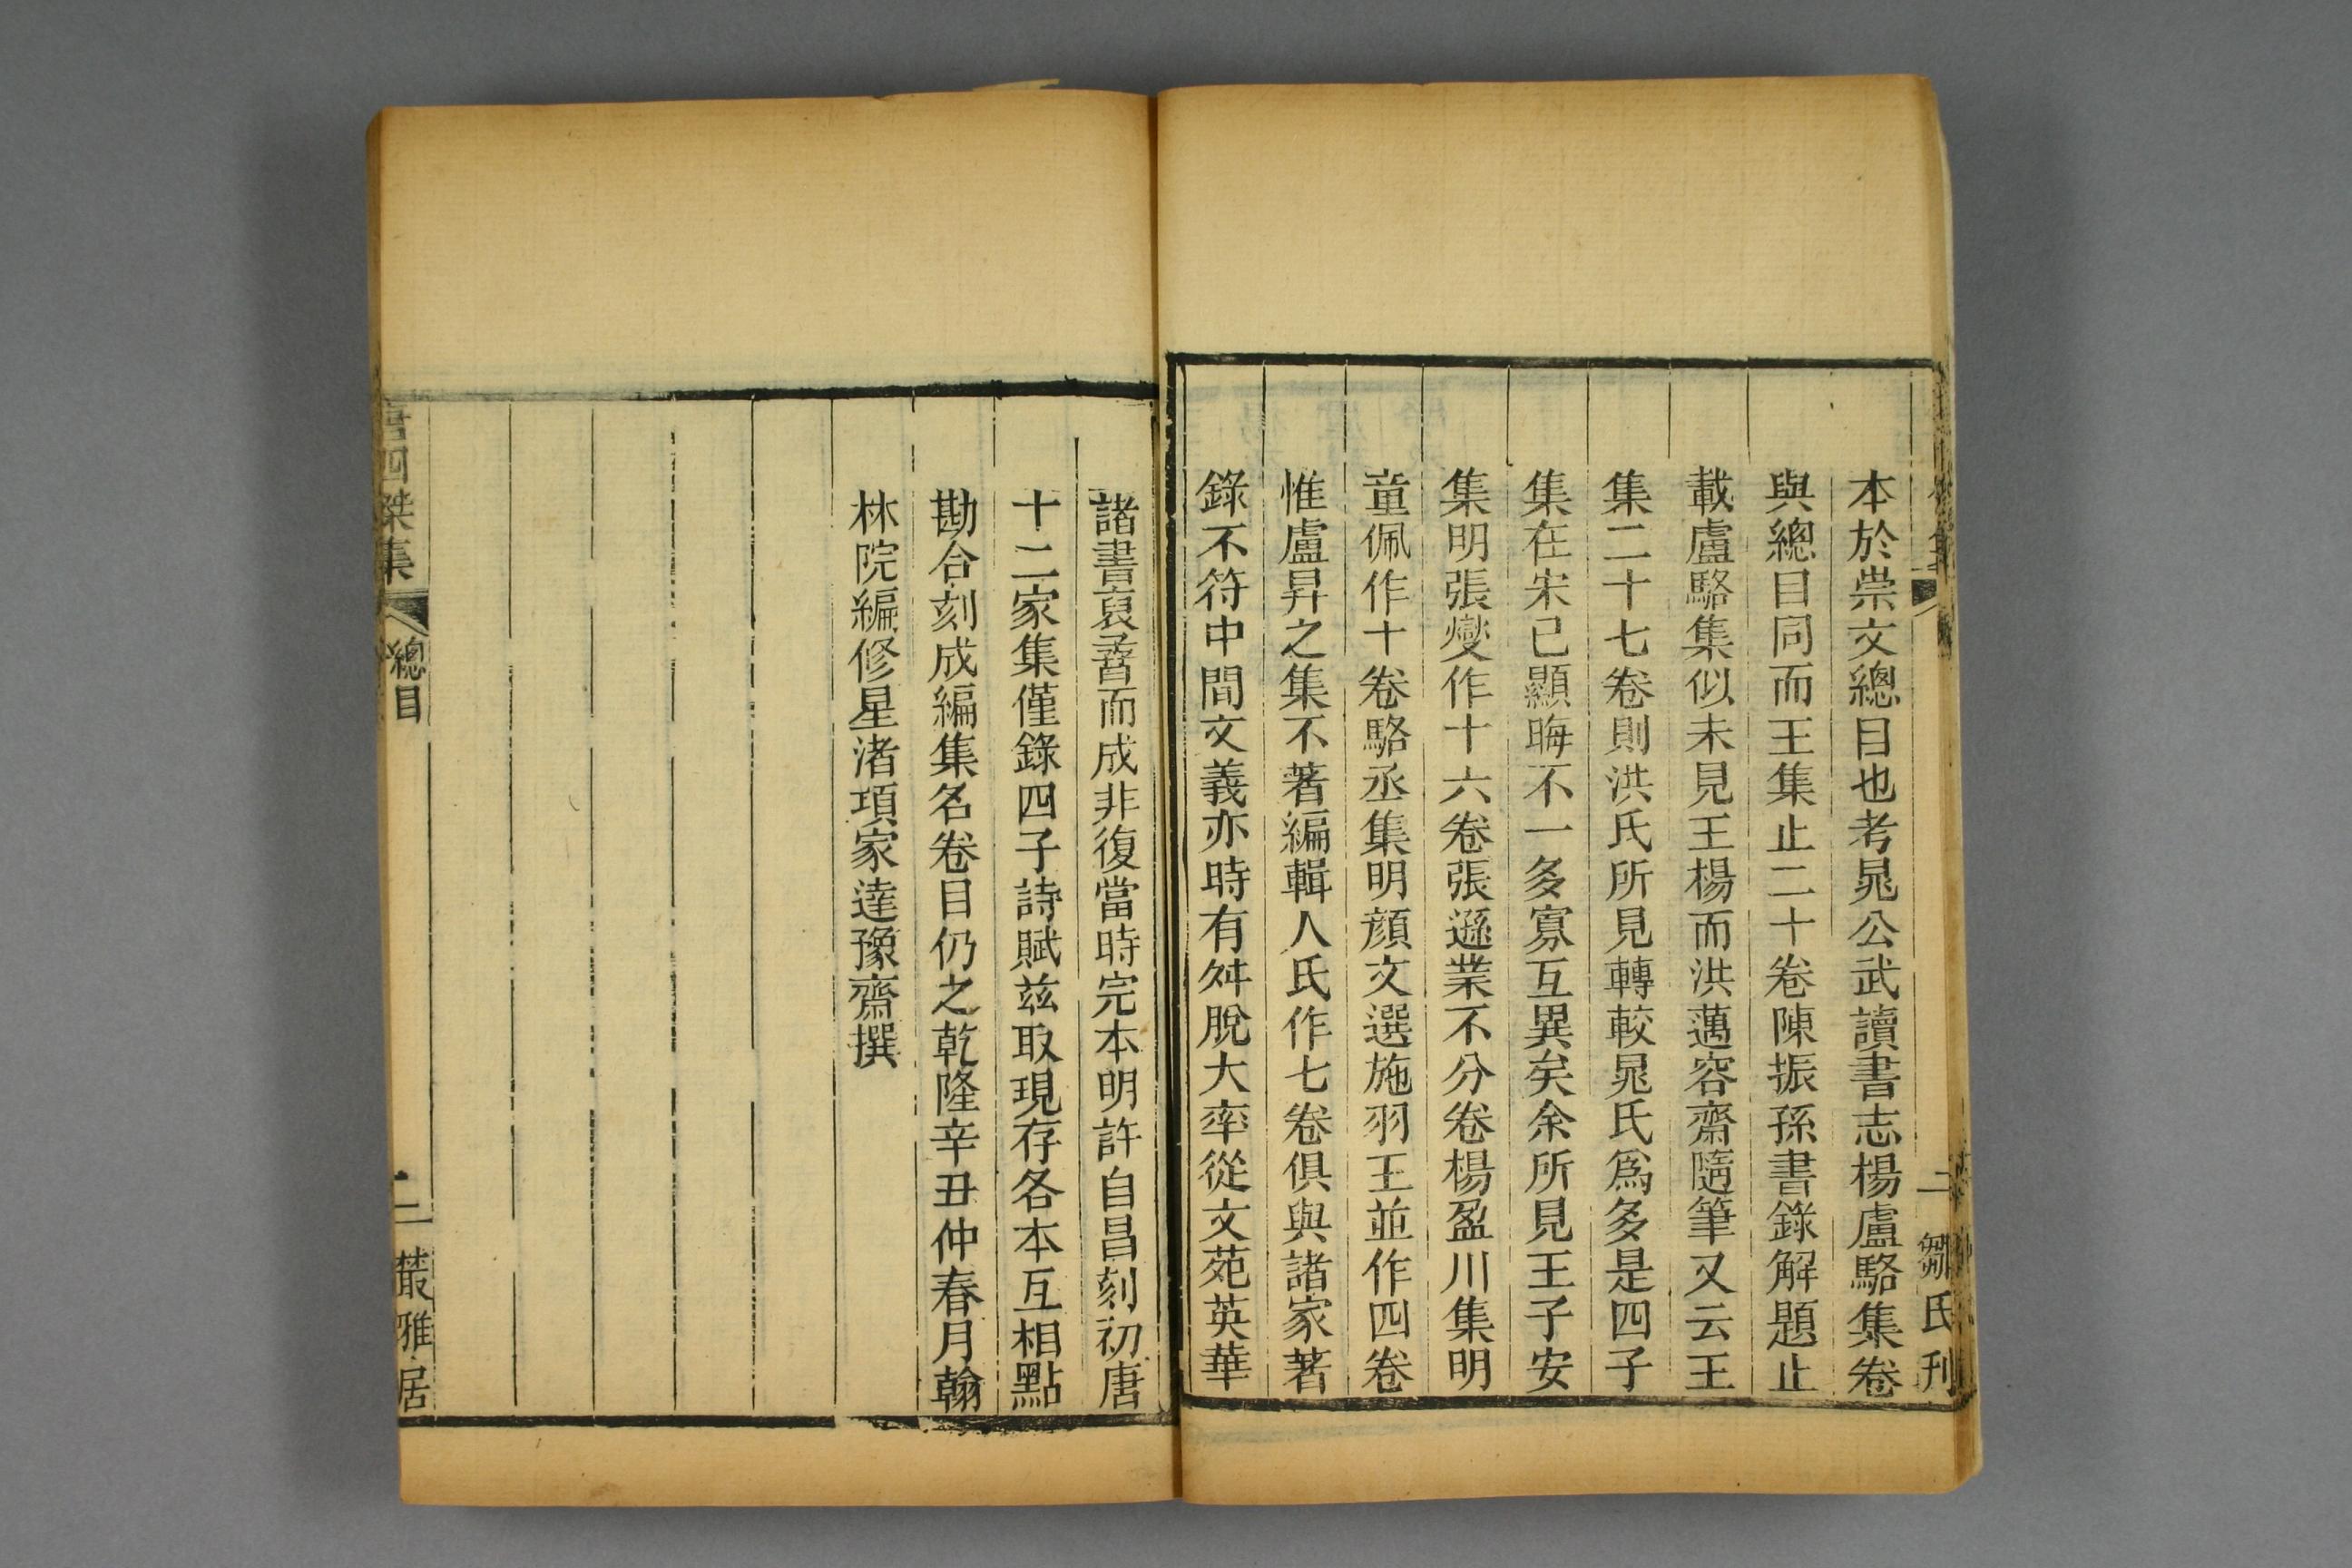 本於崇文總目也考晁公武讀書志楊盧駱集卷
與總目同而王集止二十卷陳振孫書錄解題止
載盧駱集似未見王楊而洪邁容齋隨筆又云王
集二十七卷則洪氏所見轉較晁氏爲多是四子
集在宋已顯晦不一多寡互異矣余所見王子安
集明張燮作十六卷張遜業不分卷楊盈川集明
童佩作十卷駱丞集明顏文選施羽王並作四卷
惟盧昇之集不著編輯人氏作七卷俱與諸家著
錄不符中間文義亦時有舛脫大率從文苑英華
諸書裒萃而成非復當時完本明許自昌刻初唐
十二家集僅錄四子詩賦兹取現存各本互相點
勘合刻成編集名卷目仍之乾隆辛丑仲春月翰
林院編修星渚項家達豫齋撰
二 鄒氏刊
四傑集 總目 二 叢雅居